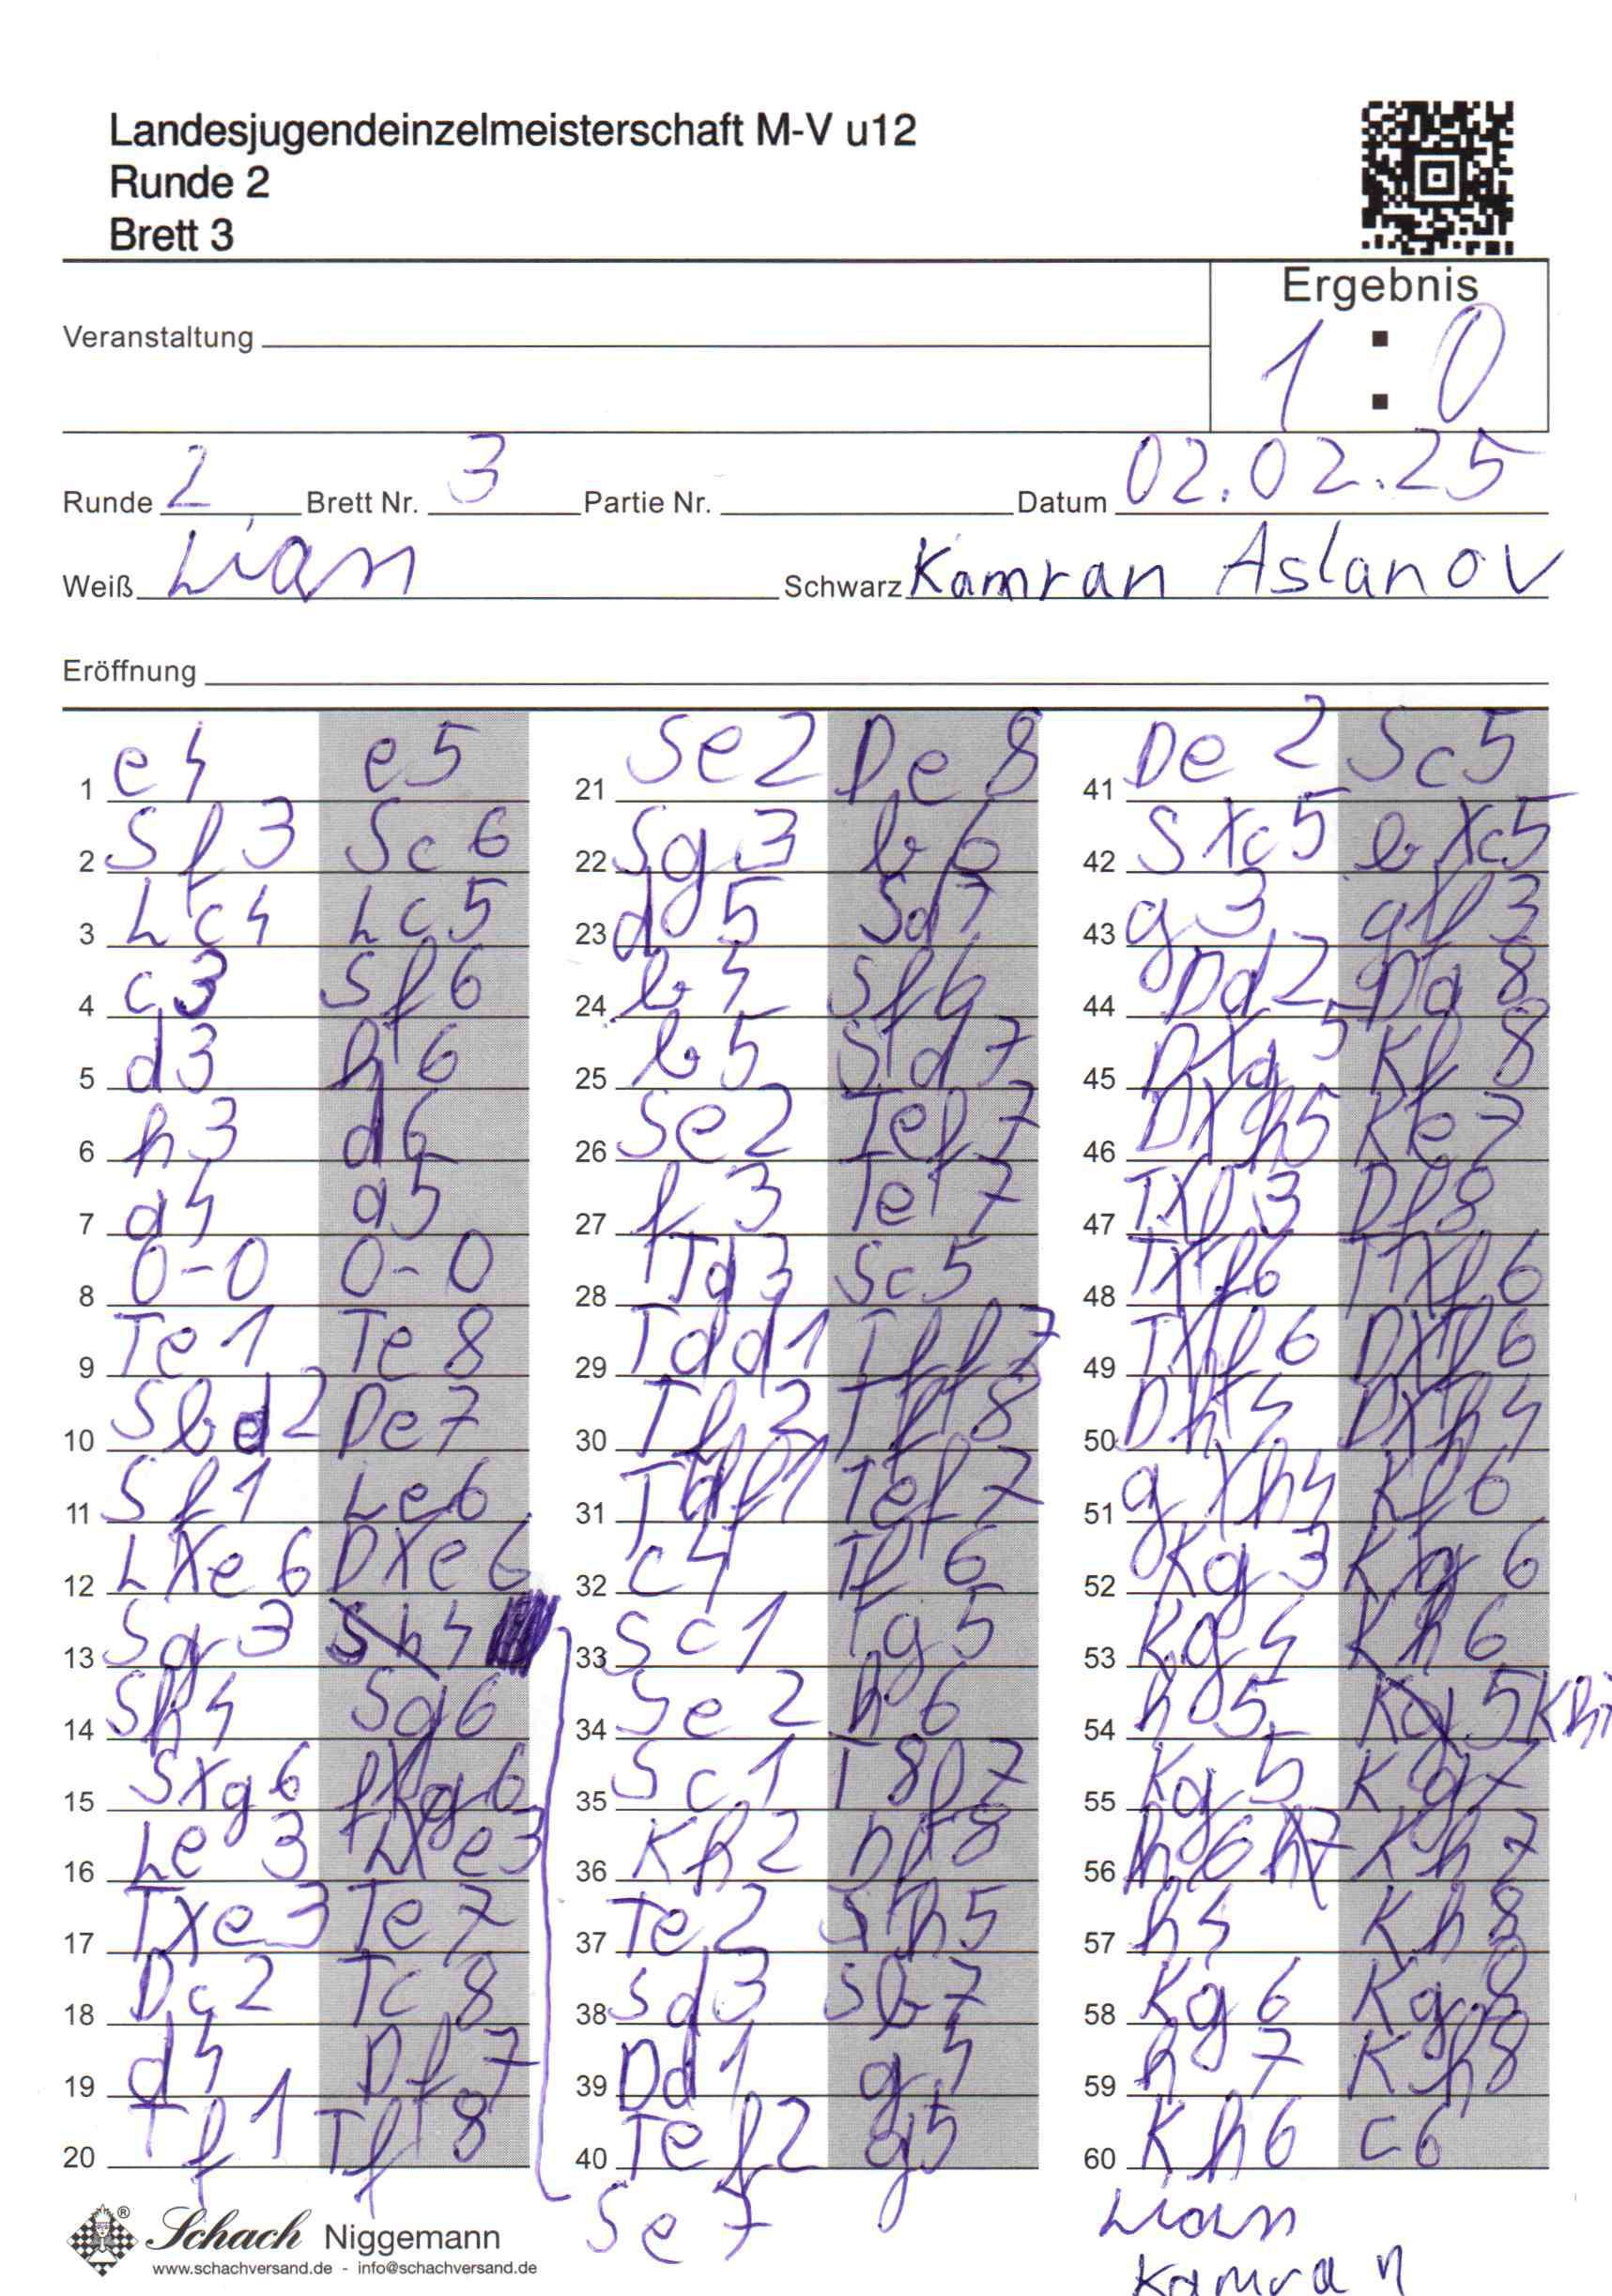 Landesjugendeinzelmeisterschaft M-V u12
Runde 2
Brett 3
Ergebnis
1 : 0
Veranstaltung
Runde 2 Brett Nr. 3 Partie Nr. Datum 02.02.25
Weiß Lian Schwarz Kamran Aslanov
Eröffnung
1 e4 e5
2 Sf3 Sc6
3 Lc4 Lc5
4 c3 Sf6
5 d3 h6
6 h3 d6
7 a4 a5
8 0-0 0-0
9 Te1 Te8
10 Sbd2 De7
11 Sf1 Le6
12 LXe6 DXe6
13 Sg3 Sh4
14 Sh4 Sg6
15 SXg6 fXg6
16 Le3 LXe3
17 TXe3 Te7
18 Dc2 Tc8
19 d4 Df7
20 Tf1 Tf8
21 Se2 De8
22 Sg3 b6
23 d5 Sd7
24 b4 Sf6
25 b5 Sfd7
26 Se2 Tef7
27 f3 Tef7
28 Td3 Sc5
29 Tdd1 Tff7
30 Tf2 Tff8
31 Tdf1 Tef7
32 c4 Tf6
33 Sc1 g5
34 Se2 h6
35 Sc1 T8f7
36 Kh2 Df8
37 Te2 Sh5
38 Sd3 Sb7
39 Dd1 g4
40 Tef2 g5
41 De2 Sc5
42 SXc5 bXc5
43 g3 gf3
44 Dd2 Dd8
45 DXg5 Kf8
46 DXh5 Ke7
47 TXf3 Df8
48 TXf6 TXf6
49 TXf6 DXf6
50 Dh4 DXh4
51 gXh4 Kf6
52 Kg3 Kg6
53 Kg4 Kh6
54 h5 Kg5
55 Kg5 Kg7
56 h6 h7 Kh7
57 h4 Kh8
58 Kg6 Kg8
59 h7 Kh8
60 Kh6 c6
Se7
Lian
Kamran
Schach Niggemann
www.schachversand.de - info@schachversand.de